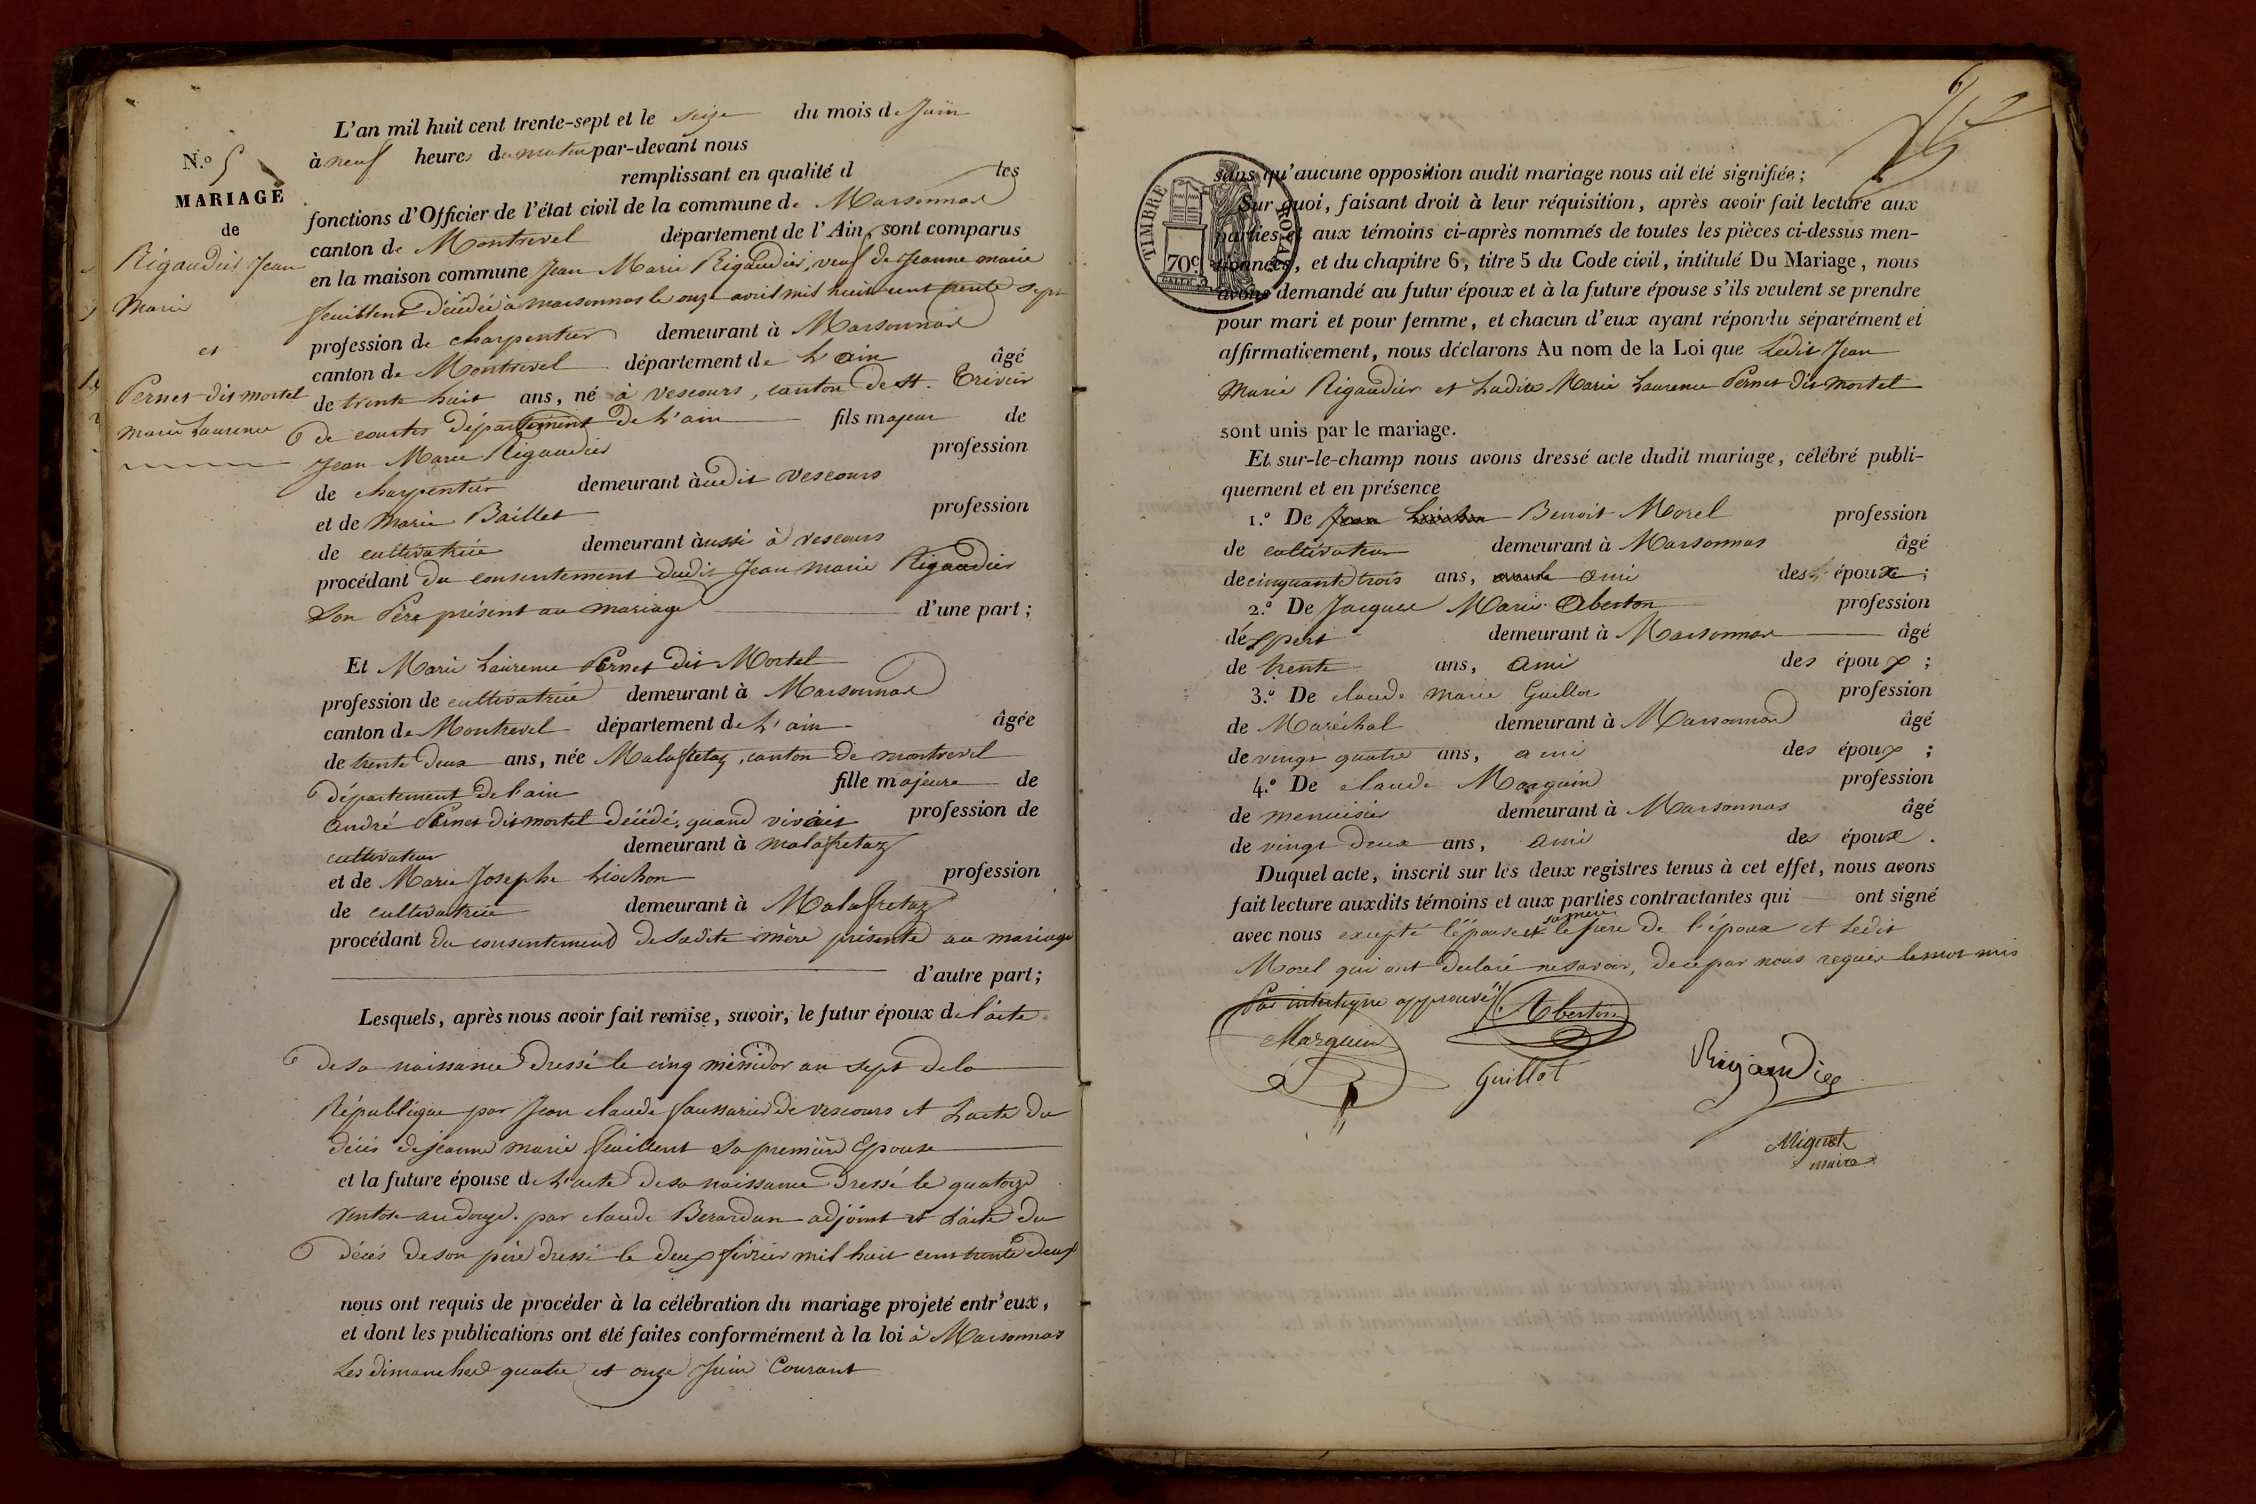 L'an mil huit cent trente-sept et le seize du mois de Juin
à neuf heures du matin par-devant nous
remplissant en qualité d les
fonctions d'Officier de l'état civil de la commune de Marsonnas
canton de Montrevel département de l'Ain, sont comparus
en la maison commune Jean Marie Rigaudier, veuf de Jeanne marie
feuillent décédée à marsonnas le onze avril mil huit cent trente sept
profession de charpentier demeurant à Marsonnas
canton de Montrevel département de L'ain âgé
de trente huit ans, né à vescours, canton de St. Trivier
de courtes département de L'ain fils majeur de
Jean Marie Rigaudier profession
de charpentier demeurant àudit vescours
et de Marie Baillet profession
de cultivatrice demeurant àussi à vescours
procédant du consentement dudit Jean marie Rigaudier
Son Père présent au mariage d'une part ;
N.º 5
MARIAGE
de
Rigaudier Jean
Marie
et
Pernet dit mortel
marie Laurence
Et Marie Laurence Pernet dit Mortel
profession de cultivatrice demeurant à Marsonnas
canton de Montrevel département de L'ain âgée
de trente deux ans, née Malafretaz, canton de montrevel
département de l'ain fille majeure de
andré Pernet dit mortel décédé, quand vivait profession de
cultivateur demeurant à malafretaz
et de Marie Josephe Liochon profession
de cultivatrice demeurant à Malafretaz
procédant du consentement de Sadite mère présente au mariage
d'autre part ;
Lesquels, après nous avoir fait remise, savoir, le futur époux de l'acte
de sa naissance dressé le cinq messidor an sept de la
République par Jean claude de vescours et L'acte du
décès de jeanne marie feuillent Sa première Epouse
et la future épouse de L'acte de sa naissance dressé le quatorze
ventose an douze par claude Berardan adjoint et L'acte du
décès de son père dressé le deux février mil huit cent trente deux
nous ont requis de procéder à la célébration du mariage projeté entr'eux,
et dont les publications ont été faites conformément à la loi à Marsonnas
Les dimanches quatre et onze Juin Courant
TIMBRE ROYAL
70c
sans qu'aucune opposition audit mariage nous ait été signifiée ;
Sur quoi, faisant droit à leur réquisition, après avoir fait lecture aux
parties et aux témoins ci-après nommés de toutes les pièces ci-dessus men-
tionnées, et du chapitre 6, titre 5 du Code civil, intitulé Du Mariage, nous
avons demandé au futur époux et à la future épouse s'ils veulent se prendre
pour mari et pour femme, et chacun d'eux ayant répondu séparément et
affirmativement, nous déclarons Au nom de la Loi que Ledit Jean
Marie Rigaudier et Ladite Marie Laurence Pernet dit Mortel
sont unis par le mariage.
Et sur-le-champ nous avons dressé acte dudit mariage, célébré publi-
quement et en présence
1.º De Jean Liochon Benoit Morel profession
de cultivateur demeurant à Marsonnas âgé
de cinquante trois ans, ami des époux ;
2.º De Jacques Marie Aberton profession
déxpert demeurant à Marsonnas âgé
de trente ans, ami des époux ;
3.º De claude marie Guillot profession
de Maréchal demeurant à Marsonnas âgé
de vingt quatre ans, ami des époux ;
4.º De claude Marguin profession
de menuisier demeurant à Marsonnas âgé
de vingt deux ans, ami des époux .
Duquel acte, inscrit sur les deux registres tenus à cet effet, nous avons
fait lecture auxdits témoins et aux parties contractantes qui ont signé
avec nous excepté l'épouse et sa mère le père de l'époux et Ledit
Morel qui ont declaré ne savoir, de ce par nous requis Le mot mis
Par interligne approuvé
Aberton
Marguin
Guillot
Rigaudier
Miguet
maire